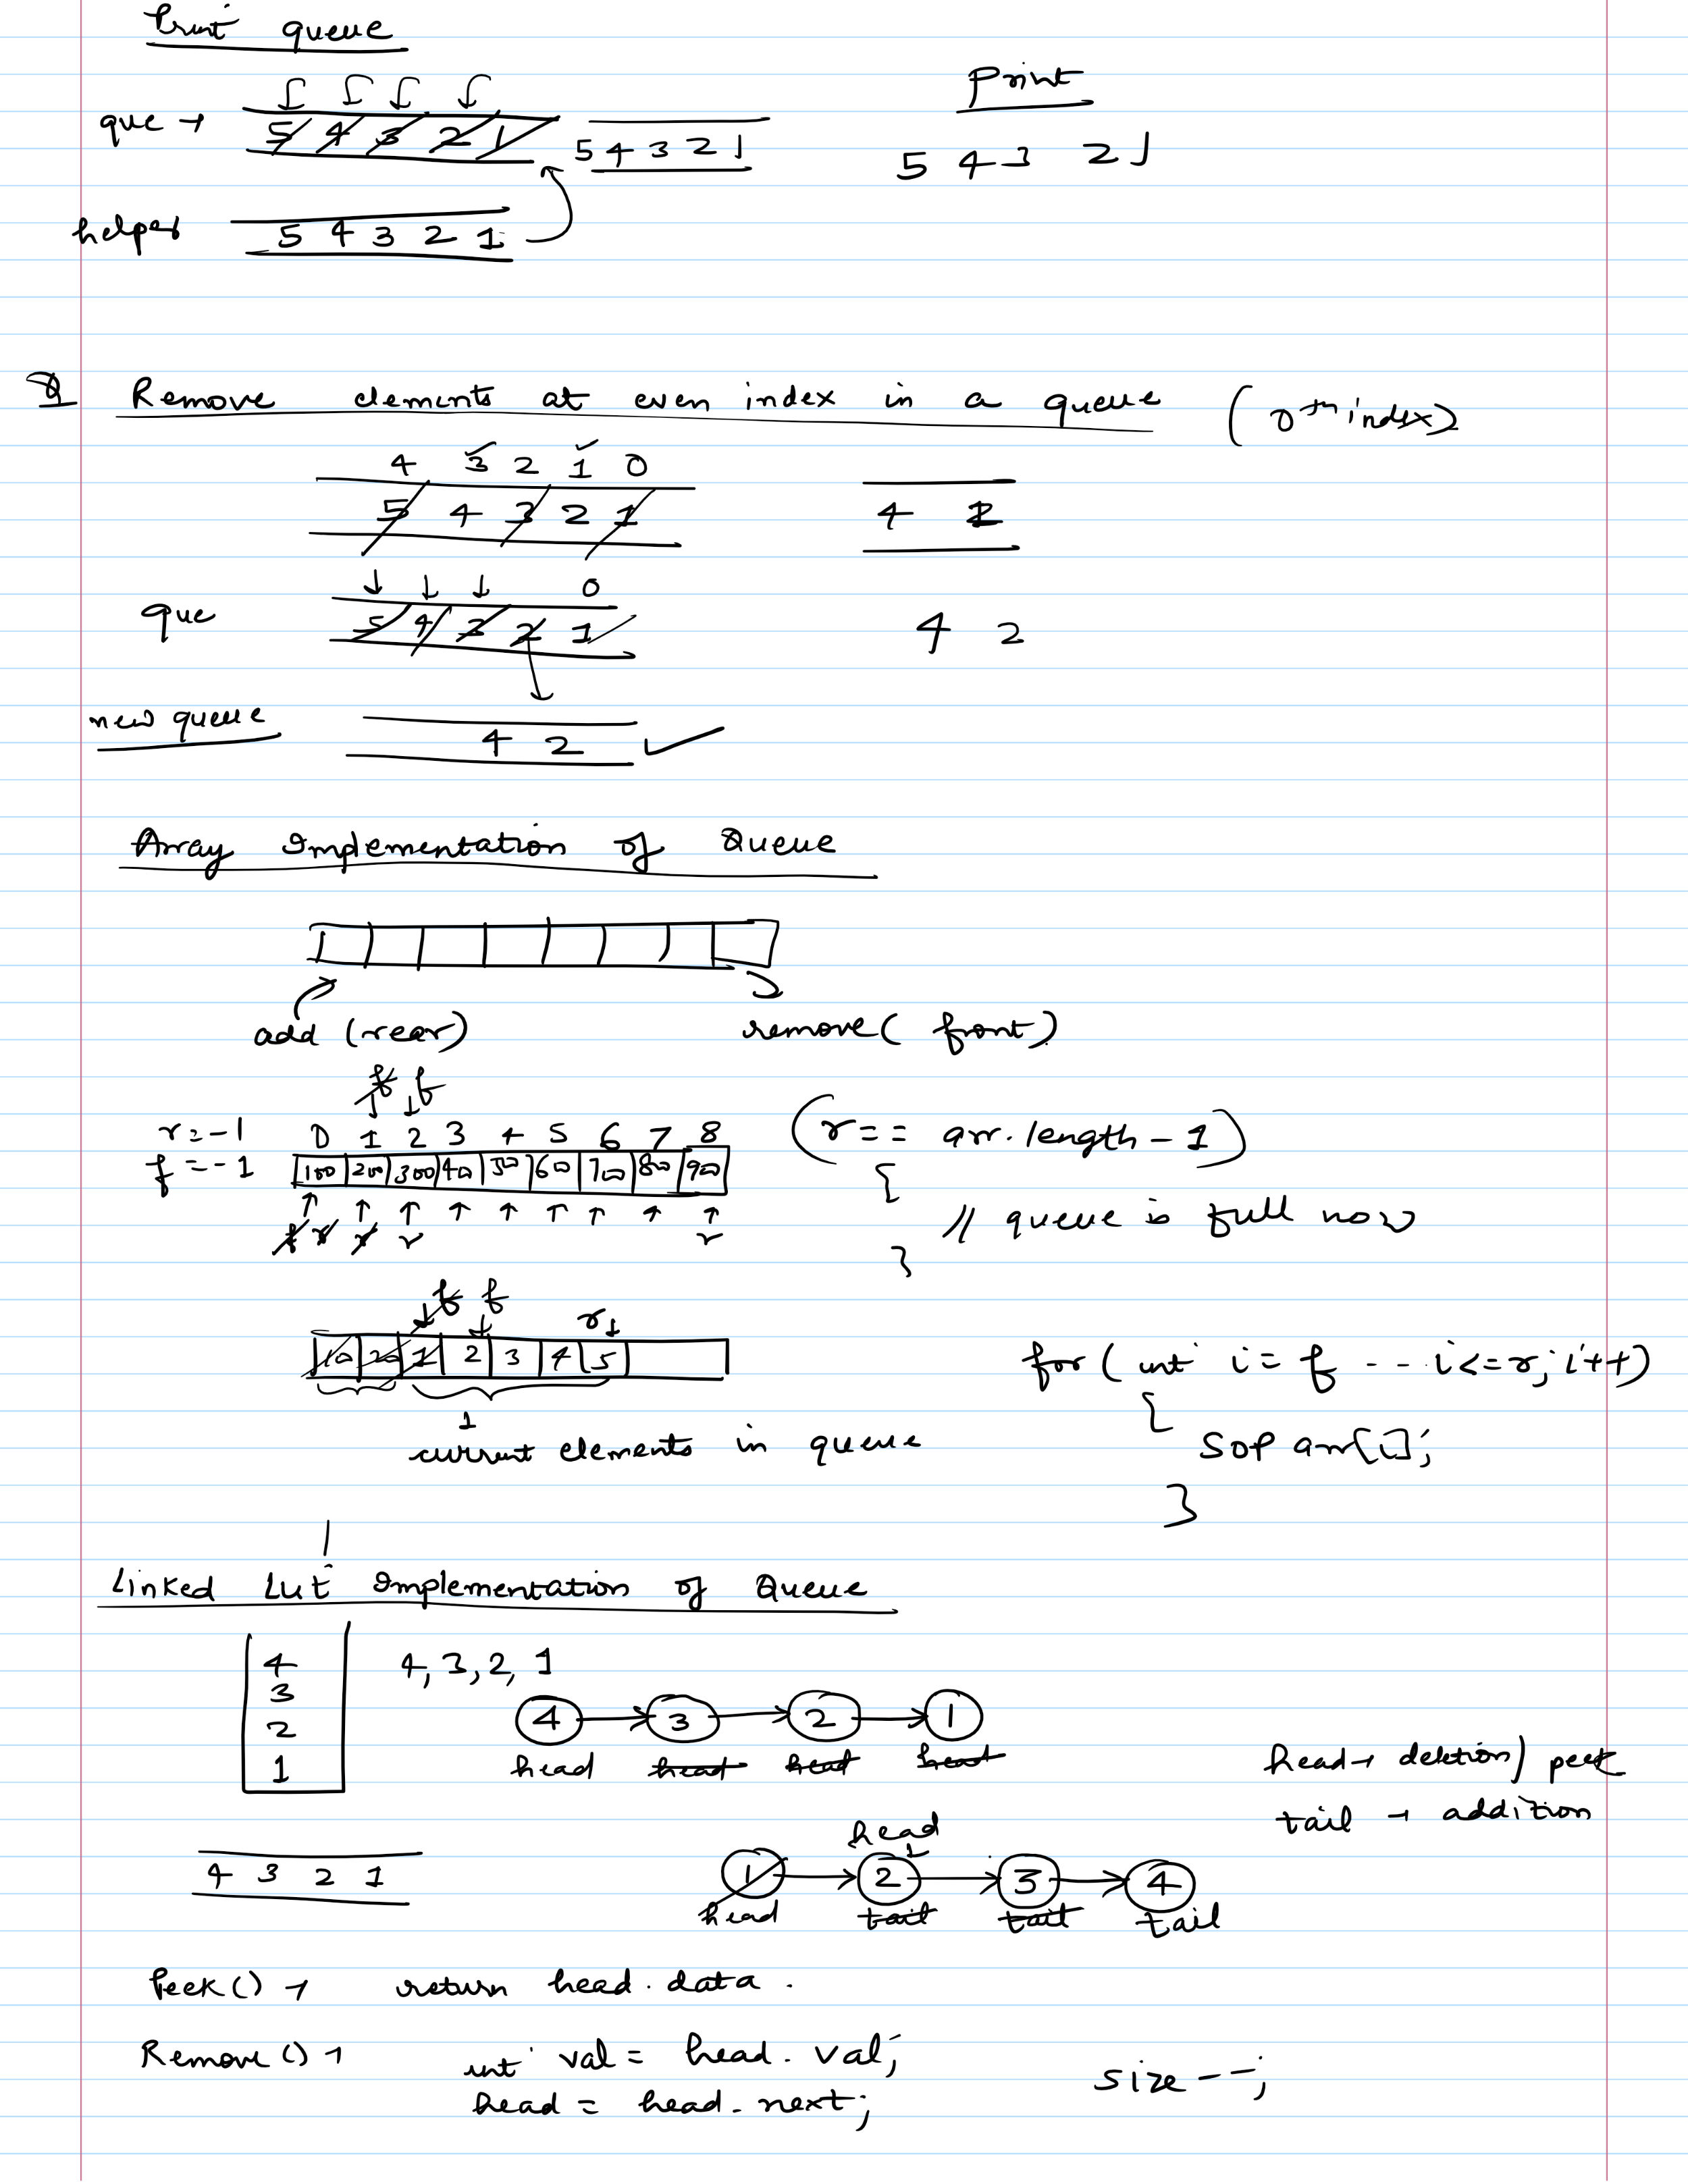 Print queue
Print
que → 5 4 3 2 1 5 4 3 2 1
5 4 3 2 1
helper 5 4 3 2 1
Q Remove elements at even index in a queue (0th index)
4 3 2 1 0
5 4 3 2 1 4 2
0
que 5 4 3 2 1 4 2
new queue 4 2
Array Implementation of Queue
add (rear) remove( front)
f f
r = -1 0 1 2 3 4 5 6 7 8 (r == arr.length - 1)
f = -1 100 200 300 40 50 60 70 80 90 {
f r r r r // queue is full now
}
f f r
10 20 1 2 3 4 5 for ( int i = f -- i <= r; i++)
{
current elements in queue SOP arr[i];
}
Linked List Implementation of Queue
4 4, 3, 2, 1
3 4 → 3 → 2 → 1
2 head head head head
1 head → deletion / peek
head tail → addition
4 3 2 1 1 → 2 → 3 → 4
head tail tail tail
Peek() → return head.data.
Remove() → int val = head.val; size--;
head = head.next;